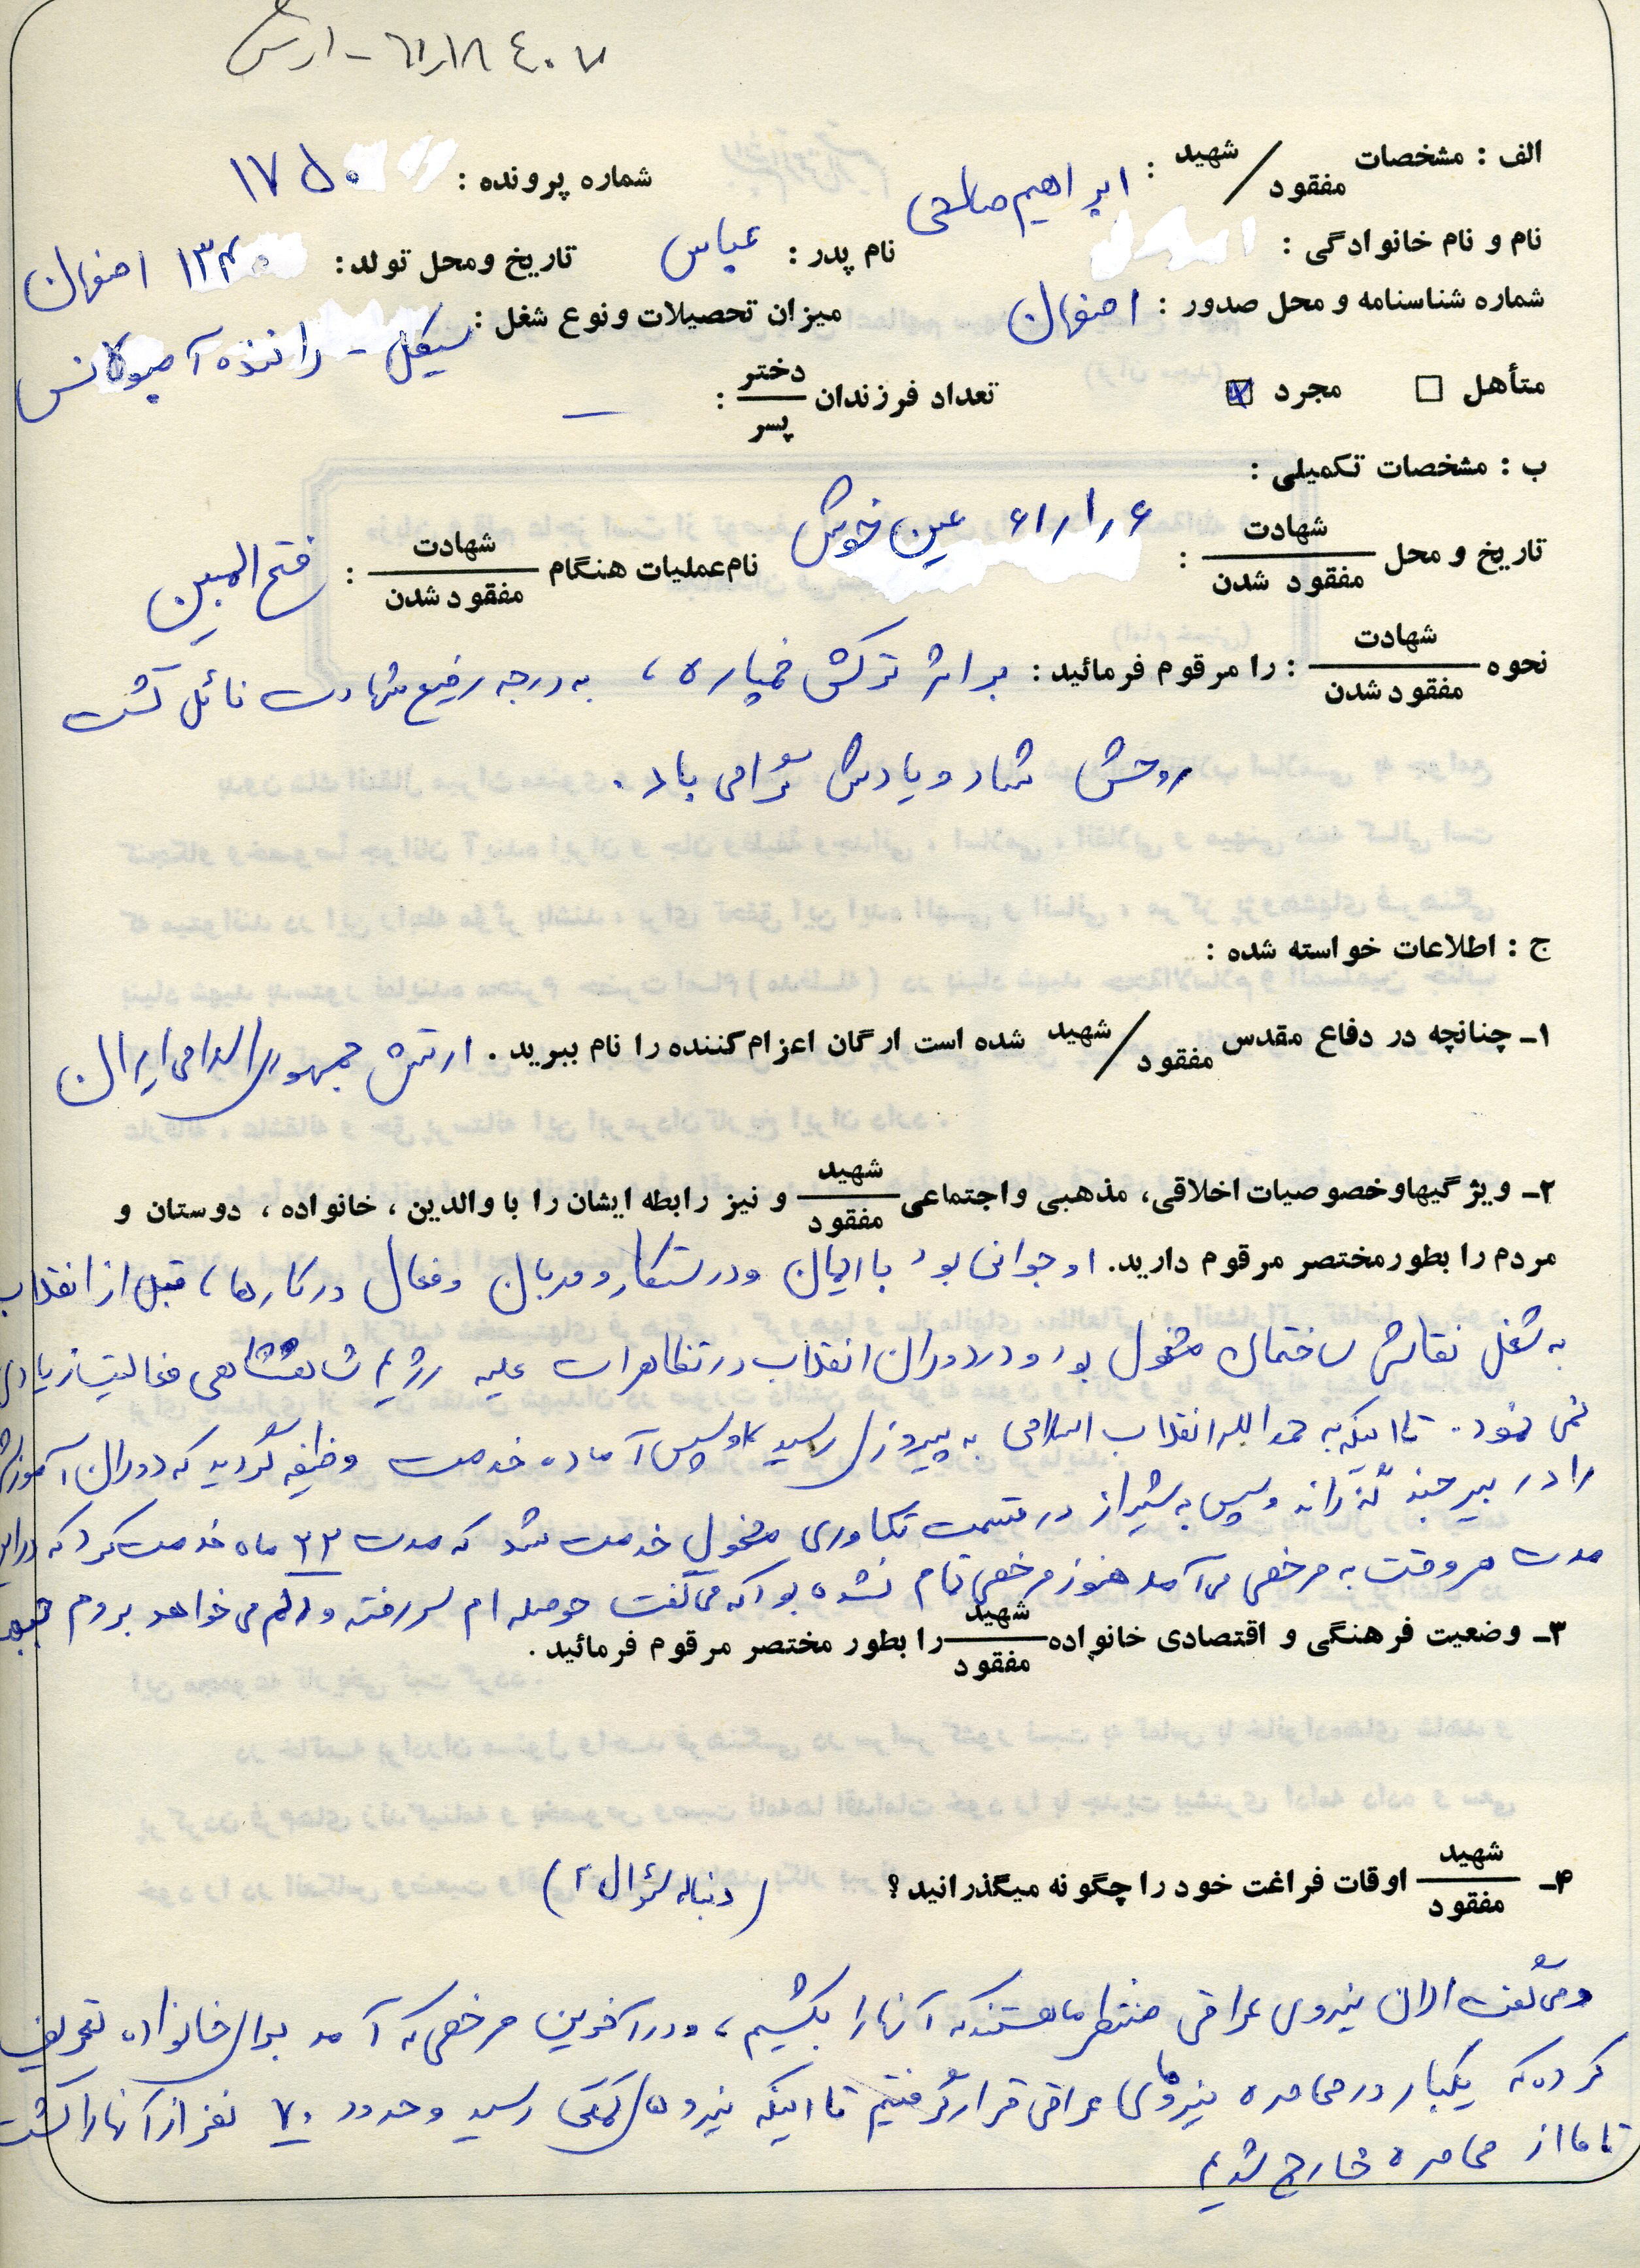 ۶۱٫۱۸۴۰۷ - ارتش
الف : مشخصات شهید / مفقود : ابراهیم صالحی
شماره پرونده : ۱۷۵۰
نام و نام خانوادگی :
نام پدر : عباس
تاریخ و محل تولد : ۱۳۴۰ اصفهان
شماره شناسنامه و محل صدور : اصفهان
میزان تحصیلات و نوع شغل : سیکل - راننده آمبولانس
متأهل □ مجرد ☑
تعداد فرزندان دختر / پسر : —
ب : مشخصات تکمیلی :
تاریخ و محل شهادت / مفقود شدن : ۶۱/۱/۶ عین خوش
نام عملیات هنگام شهادت / مفقود شدن : فتح المبین
نحوه شهادت / مفقود شدن : را مرقوم فرمائید : بر اثر ترکش خمپاره ، به درجه رفیع شهادت نائل گشت
روحش شاد و یادش گرامی باد .
ج : اطلاعات خواسته شده :
۱ـ چنانچه در دفاع مقدس شهید / مفقود شده است ارگان اعزام کننده را نام ببرید . ارتش جمهوری اسلامی ایران
۲ـ ویژگیها و خصوصیات اخلاقی، مذهبی و اجتماعی شهید / مفقود و نیز رابطه ایشان را با والدین ، خانواده ، دوستان و
مردم را بطور مختصر مرقوم دارید. او جوانی بود با ایمان و درستکار و مهربان و فعال در کارها ، قبل از انقلاب
به شغل نقاشی ساختمان مشغول بود و در دوران انقلاب در تظاهرات علیه رژیم شاهنشاهی فعالیت زیادی
می نمود . تا اینکه به حمدالله انقلاب اسلامی به پیروزی رسید و سپس آماده خدمت وظیفه گردید که دوران آموزش
را در بیرجند گذراند و سپس به شیراز در قسمت تکاوری مشغول خدمت شد که مدت ۲۲ ماه خدمت کرد که در این
مدت هر وقت به مرخصی می آمد هنوز مرخصی تمام نشده بود که می گفت حوصله ام سر رفته و دلم می خواهد بروم جبهه
۳ـ وضعیت فرهنگی و اقتصادی خانواده شهید / مفقود را بطور مختصر مرقوم فرمائید .
۴ـ شهید / مفقود اوقات فراغت خود را چگونه میگذرانید ؟ (دنباله سؤال ۲)
و می گفت الان نیروی عراقی منتظر ما هستند که آنها را بکشیم ، و در آخرین مرخصی که آمد برای خانواده تعریف
کرده که یکبار در محاصره نیروهای عراقی قرار گرفتیم تا اینکه نیروهای کمکی رسید و حدود ۷۰ نفر از آنها را کشت
تا ما از محاصره خارج شدیم